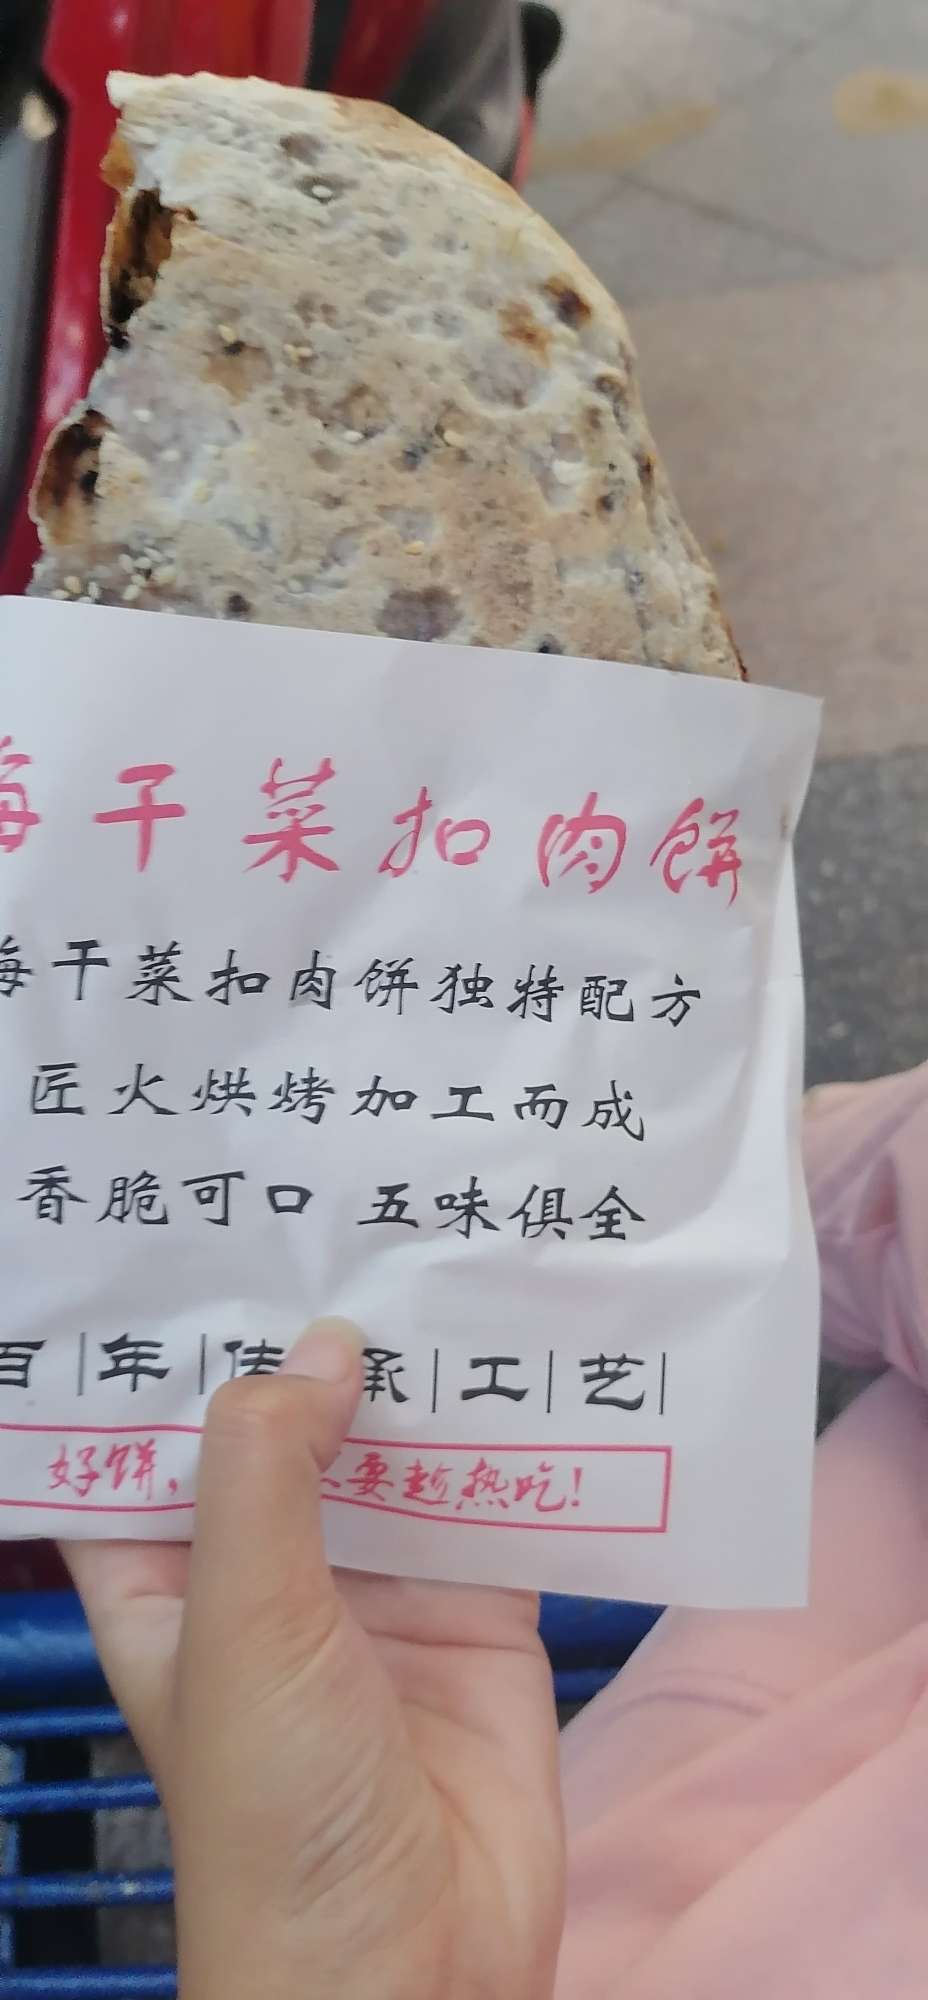 梅干菜扣肉饼
梅干菜扣肉饼独特配方
匠火烘烤加工而成
香脆可口 五味俱全
百|年|传|承|工|艺|
好饼，要趁热吃！